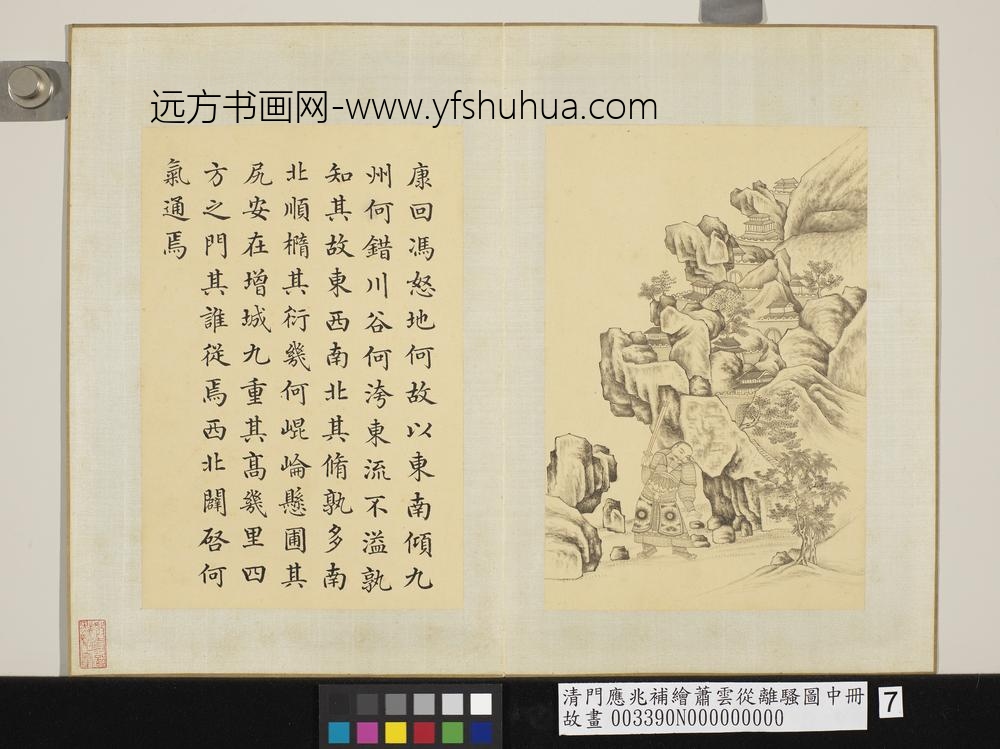 远方书画网-www.yfshuhua.com
康回馮怒地何故以東南傾九
州何錯川谷何洿東流不溢孰
知其故東西南北其脩孰多南
北順橢其衍幾何崐崘懸圃其
尻安在增城九重其高幾里四
方之門其誰從焉西北闢啓何
氣通焉
清門應兆補繪蕭雲從離騷圖中冊
故畫 003390N000000000
7